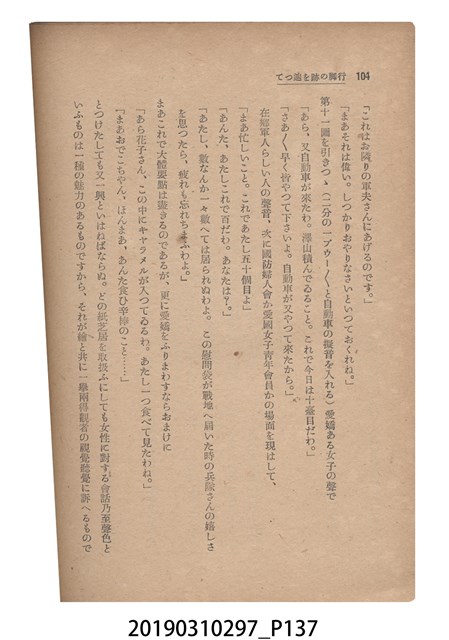 104 行脚の跡を辿つて
「これはお隣りの軍夫さんにあげるのです。」
「まあそれは偉い。しつかりおやりなさいといつておくれね。」
第十一圖を引きつゝ(二分の一ブウー〱と自動車の擬音を入れる)愛嬌ある女子の聲で
「あら、又自動車が來たわ。澤山積んでゐること。これで今日は十臺目だわ。」
「さあ〱早く皆やつて下さいよ。自動車が又やつて來たから。」
在鄕軍人らしい人の聲音、次に國防婦人會か愛國女子靑年會員かの場面を現はして、
「まあ忙しいこと。これであたし五十個目よ」
「あんた、あたしこれで百だわ。あなたは?。」
「あたし、數なんか一々數へては居られぬわよ。この慰問袋が戰地へ屆いた時の兵隊さんの嬉しさ
を思つたら、疲れも忘れちまふわよ。」
まあこれで大體要點は盡きるのであるが、更に愛嬌をふりまわすならおまけに
「あら花子さん、この中にキヤラメルが入つてゐるわ。あたし一つ食べて見たわね。」
「まあおでこちやん、ほんまあ、あんた食ひ辛棒のこと……」
とつけたしても又一興といはねばならぬ。どの紙芝居を取扱ふにしても女性に對する會話乃至聲色と
いふものは一種の魅力のあるものですから、それが繪と共に一擧兩得觀者の視覺聽覺に訴へるもので
20190310297_P137